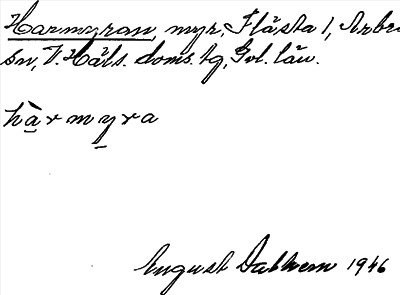 Harmyran, myr, Flästa 1, Arbrå
sn, V. Häls. doms. tg, Gvl. län.
hàrmyra
August Dahlvern 1946